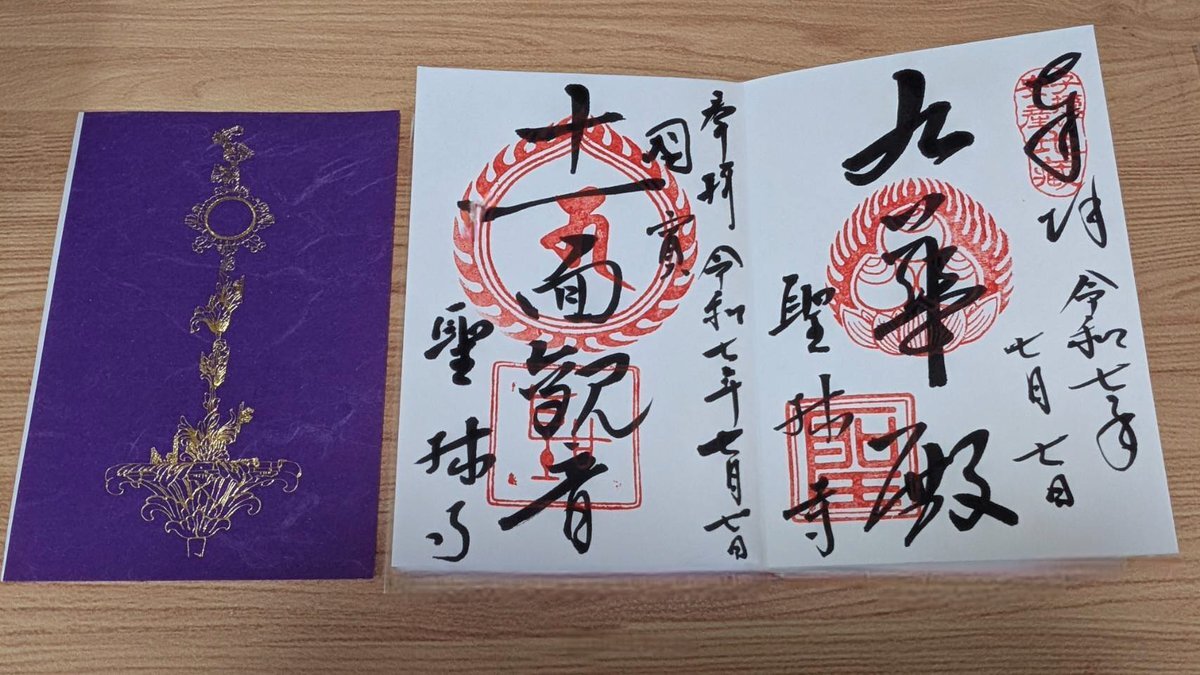 奉拝 令和七年
七月七日
九華殿
聖林寺
聖
奉拝 令和七年七月七日
国宝
十一面観音
聖林寺